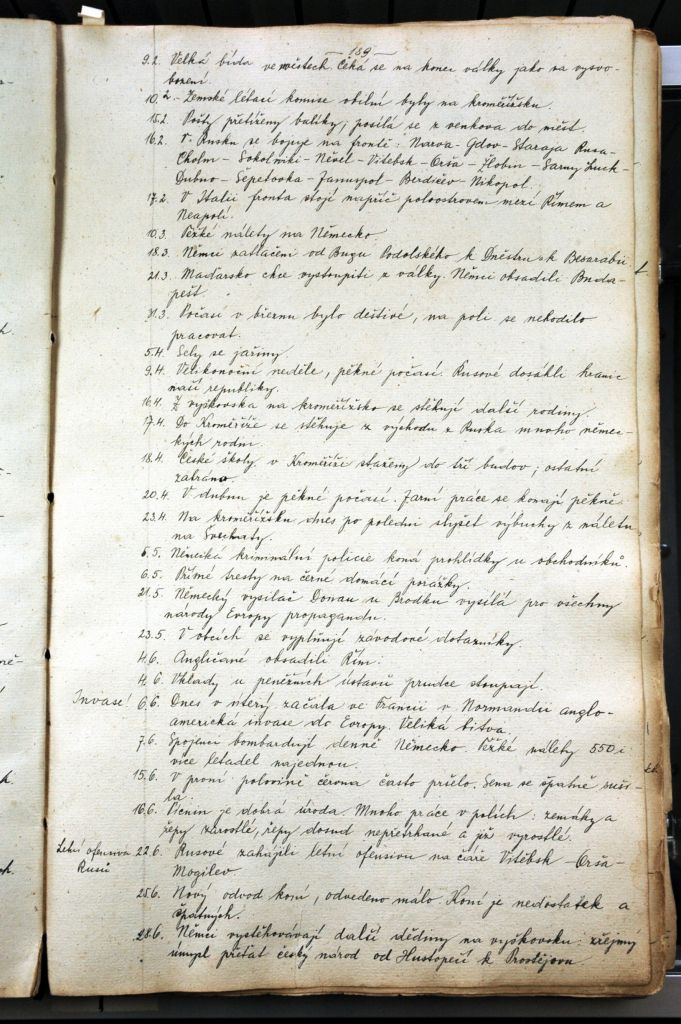 — 189 —
9.2. Velká bída ve městech. Čeká se na konec války jako na vysvo-
bození.
10.2. Zemské létací komise obilní byly na kroměřížsku.
15.2. Pošty přetíženy balíky; posílá se z venkova do měst.
16.2. V Rusku se bojuje na frontě: Narva - Gdov - Staraja Rusa -
Cholm - Sokolniki - Něvel - Vitebsk - Orša - Žlobin - Sarny Luck -
Dubno - Šepetovka - Jampol - Berdičev - Nikopol.
17.2. V Italii fronta stojí napříč poloostrovem mezi Římem a
Neapolí.
10.3. Těžké nálety na Německo.
18.3. Němci zatlačeni od Bugu Podolského k Dněstru a k Besarabii
21.3. Maďarsko chce vystoupiti z války. Němci obsadili Buda-
pešť.
31.3. Počasí v březnu bylo deštivé, na poli se nehodilo
pracovat.
5.4. Sely se jařiny.
9.4. Velikonoční neděle, pěkné počasí. Rusové dosáhli hranic
naší republiky.
16.4. Z vyškovska na kroměřížsko se stěhují další rodiny.
17.4. Do Kroměříže se stěhuje z východu z Ruska mnoho němec-
kých rodin.
18.4. České školy v Kroměříži staženy do tří budov; ostatní
zabrano.
20.4. V dubnu je pěkné počasí. Jarní práce se konají pěkně.
23.4. Na kroměřížsku dnes po poledni slyšet výbuchy z náletu
na Švechaty.
6.5. Německá kriminální policie koná prohlídky u obchodníků.
6.5. Přísné tresty na černé domácí porážky.
21.5. Německý vysilač Donau u Brodku vysílá pro všechny
národy Evropy propagandu.
23.5. V obcích se vyplňují závodové dotazníky.
4.6. Angličané obsadili Řím.
4.6. Vklady u peněžních ústavů prudce stoupají.
Invase! 6.6. Dnes v úterý začala ve Francii v Normandii anglo-
americká invase do Evropy. Veliká bitva.
7.6. Spojenci bombardují denně Německo. Těžké nálety 550 i
více letadel najednou.
15.6. V první polovině června často pršelo. Sena se špatně suši-
la.
16.6. Pícnin je dobrá úroda. Mnoho práce v polích: zemáky a
řepy zarostlé, řepy dosud nepřetrhané a již vyrostlé.
Letní ofensiva 22.6. Rusové zahájili letní ofensivu na čáře Vitěbsk - Orša -
Rusů Mogilev
25.6. Nový odvod koní, odvedeno málo. Koní je nedostatek a
špatných.
28.6. Němci vystěhovávají další dědiny na vyškovsku: zřejmý
úmysl přetat český národ od Hustopečí k Prostějovu.